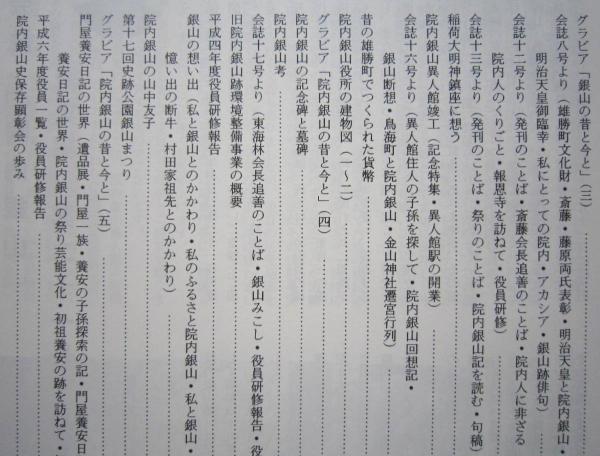 グラビア「院内銀山の昔と今と」(三)
会誌八号より(雄勝町文化財・斎藤・藤原両氏表彰・明治天皇と院内銀山・
明治天皇御臨幸・私にとっての院内・アカシア・銀山跡俳句)
会誌十二号より(発刊のことば・斎藤会長追善のことば・院内人に非ざる
院内人のくりごと・報恩寺を訪ねて・役員研修)
会誌十三号より(発刊のことば・祭りのことば・院内銀山記を読む・句稿)
稲荷大明神鎮座に想う
院内銀山異人館竣工(記念特集・異人館駅の開業)
会誌十六号より(異人館住人の子孫を探して・院内銀山回想記・
銀山断想・鳥海町と院内銀山・金山神社遷宮行列)
昔の雄勝町でつくられた貨幣
院内銀山役所の建物図(一〜二)
グラビア「院内銀山の昔と今と」(四)
院内銀山の記念碑と墓碑
院内銀山考
会誌十七号より(東海林会長追善のことば・銀山みこし・役員研修報告・役
旧院内銀山跡環境整備事業の概要
平成四年度役員研修報告
銀山の想い出(私と銀山とのかかわり・私のふるさと院内銀山・私と銀山・
憶い出の断牛・村田家祖先とのかかわり)
院内銀山の山中友子
第十七回史跡公園銀山まつり
グラビア「院内銀山の昔と今と」(五)
門屋養安日記の世界(遺品展・門屋一族・養安の子孫探索の記・門屋養安日
養安日記の世界・院内銀山の祭り芸能文化・初祖養安の跡を訪ねて・
平成六年度役員一覧・役員研修報告
院内銀山史保存顕彰会の歩み